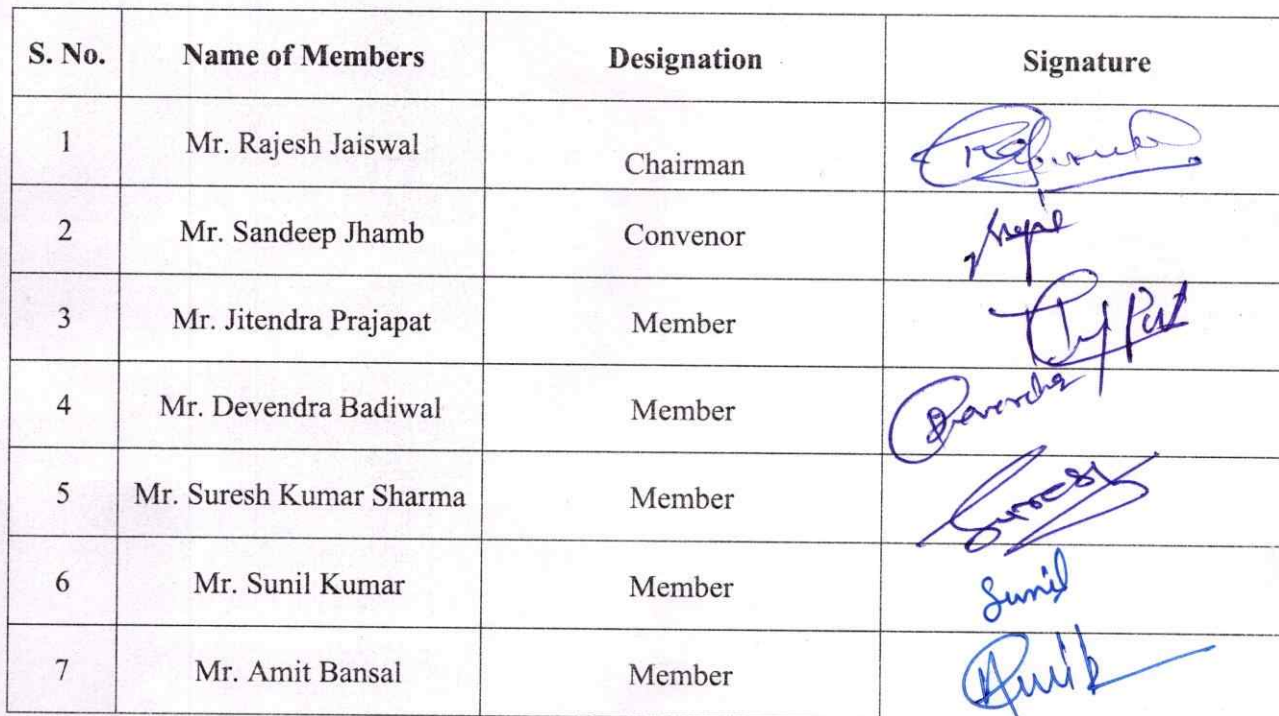 S. No. Name of Members Designation Signature
1 Mr. Rajesh Jaiswal Chairman
2 Mr. Sandeep Jhamb Convenor
3 Mr. Jitendra Prajapat Member
4 Mr. Devendra Badiwal Member Devendra
5 Mr. Suresh Kumar Sharma Member Suresh
6 Mr. Sunil Kumar Member Sunil
7 Mr. Amit Bansal Member